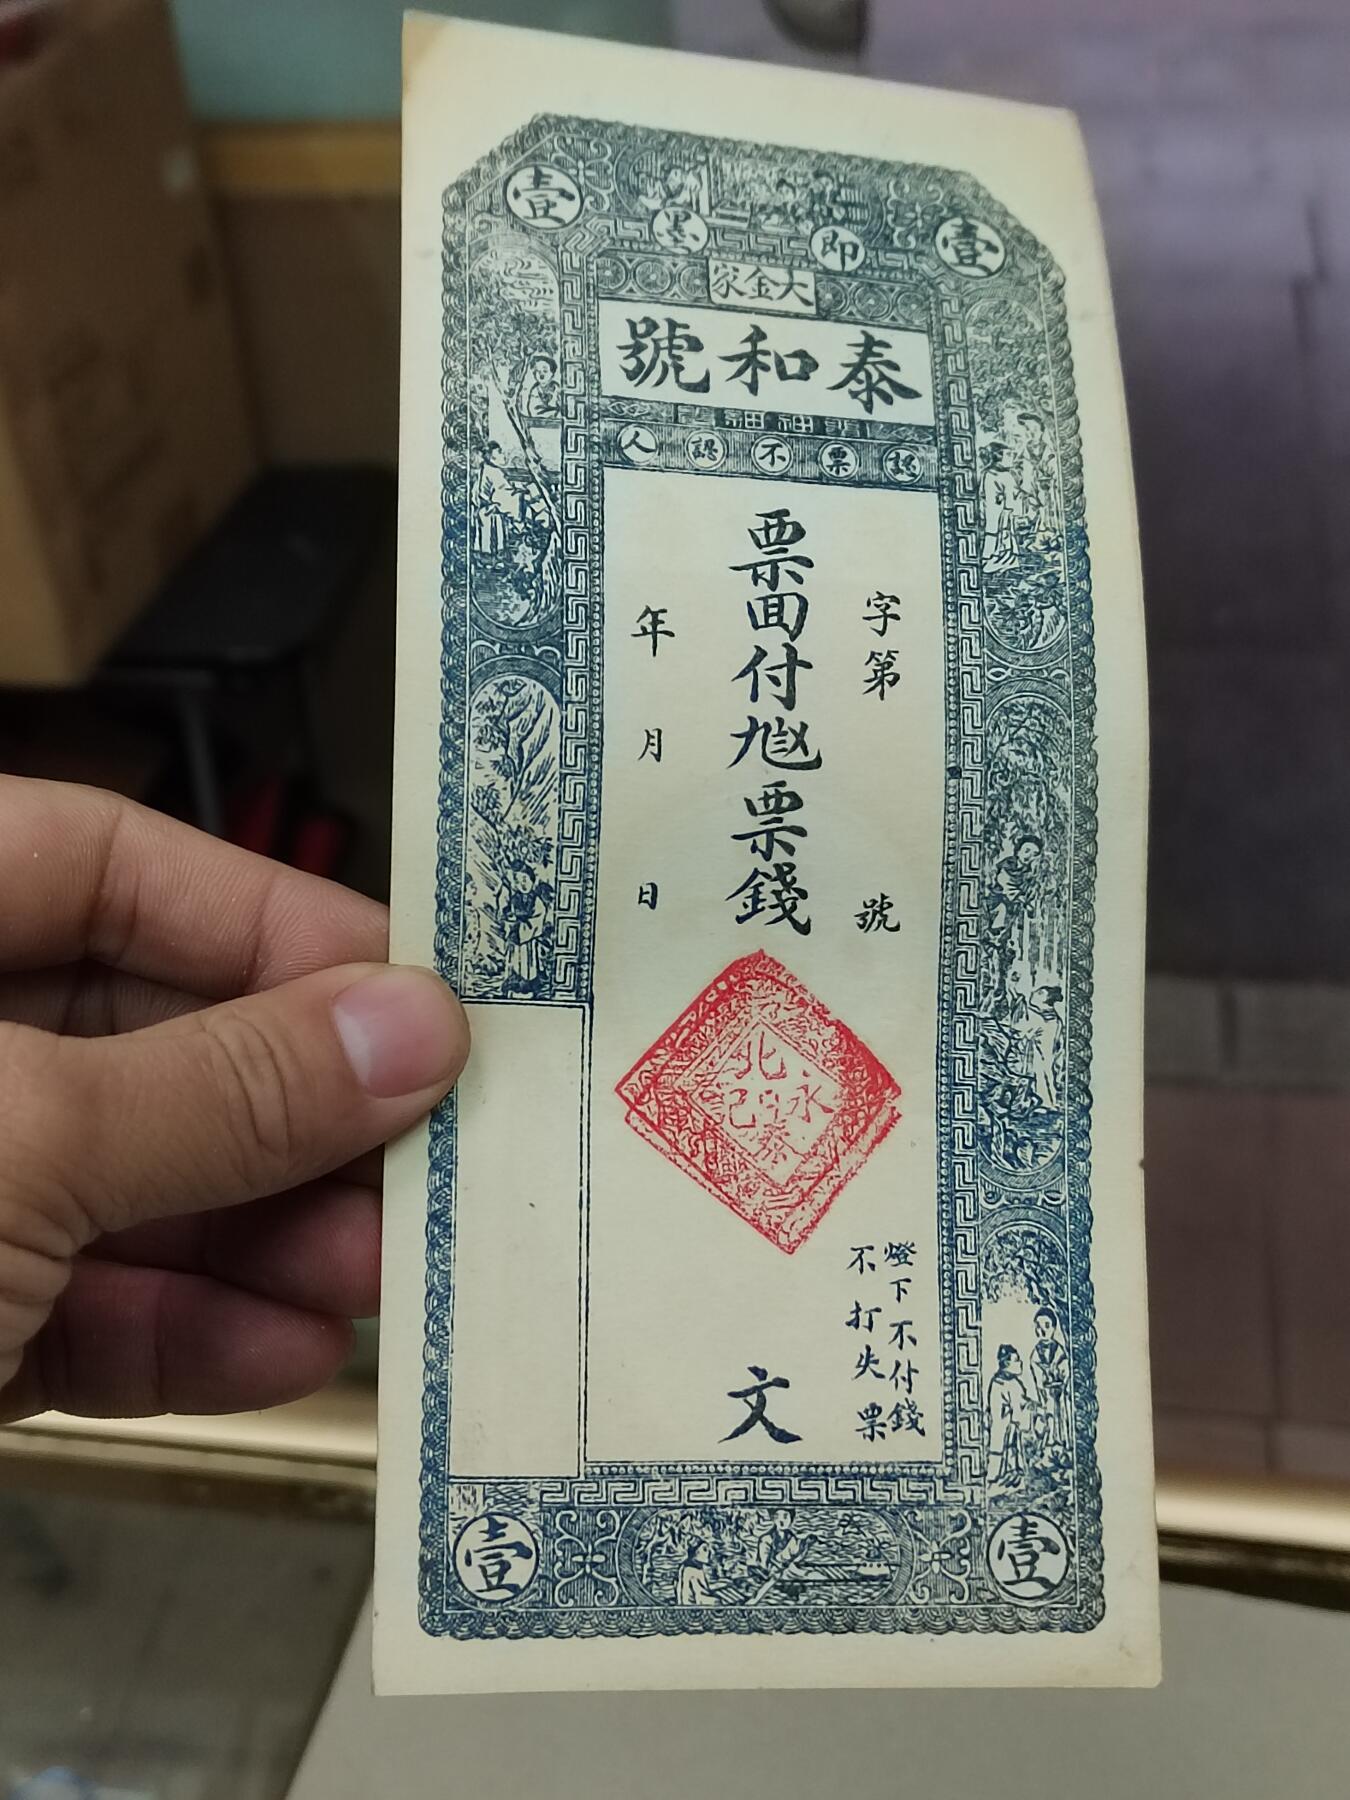 壹
即墨
壹
大金家
泰和號
認票不認人
字第 號
票回付 票錢
文
年 月 日
燈下不付錢
不打失票
永
北
記
壹
壹